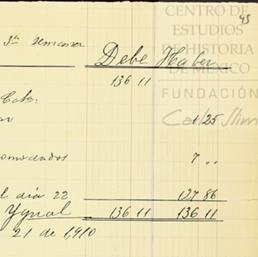 CENTRO DE
ESTUDIOS
DE HISTORIA
DE MÉXICO
FUNDACIÓN
Carlos Slim
43
3ª semana
Debe Haber
136 11
1 25
comodados
7 ,,
l día 22
127 86
Ygual 136 11 136 11
21 de 1910